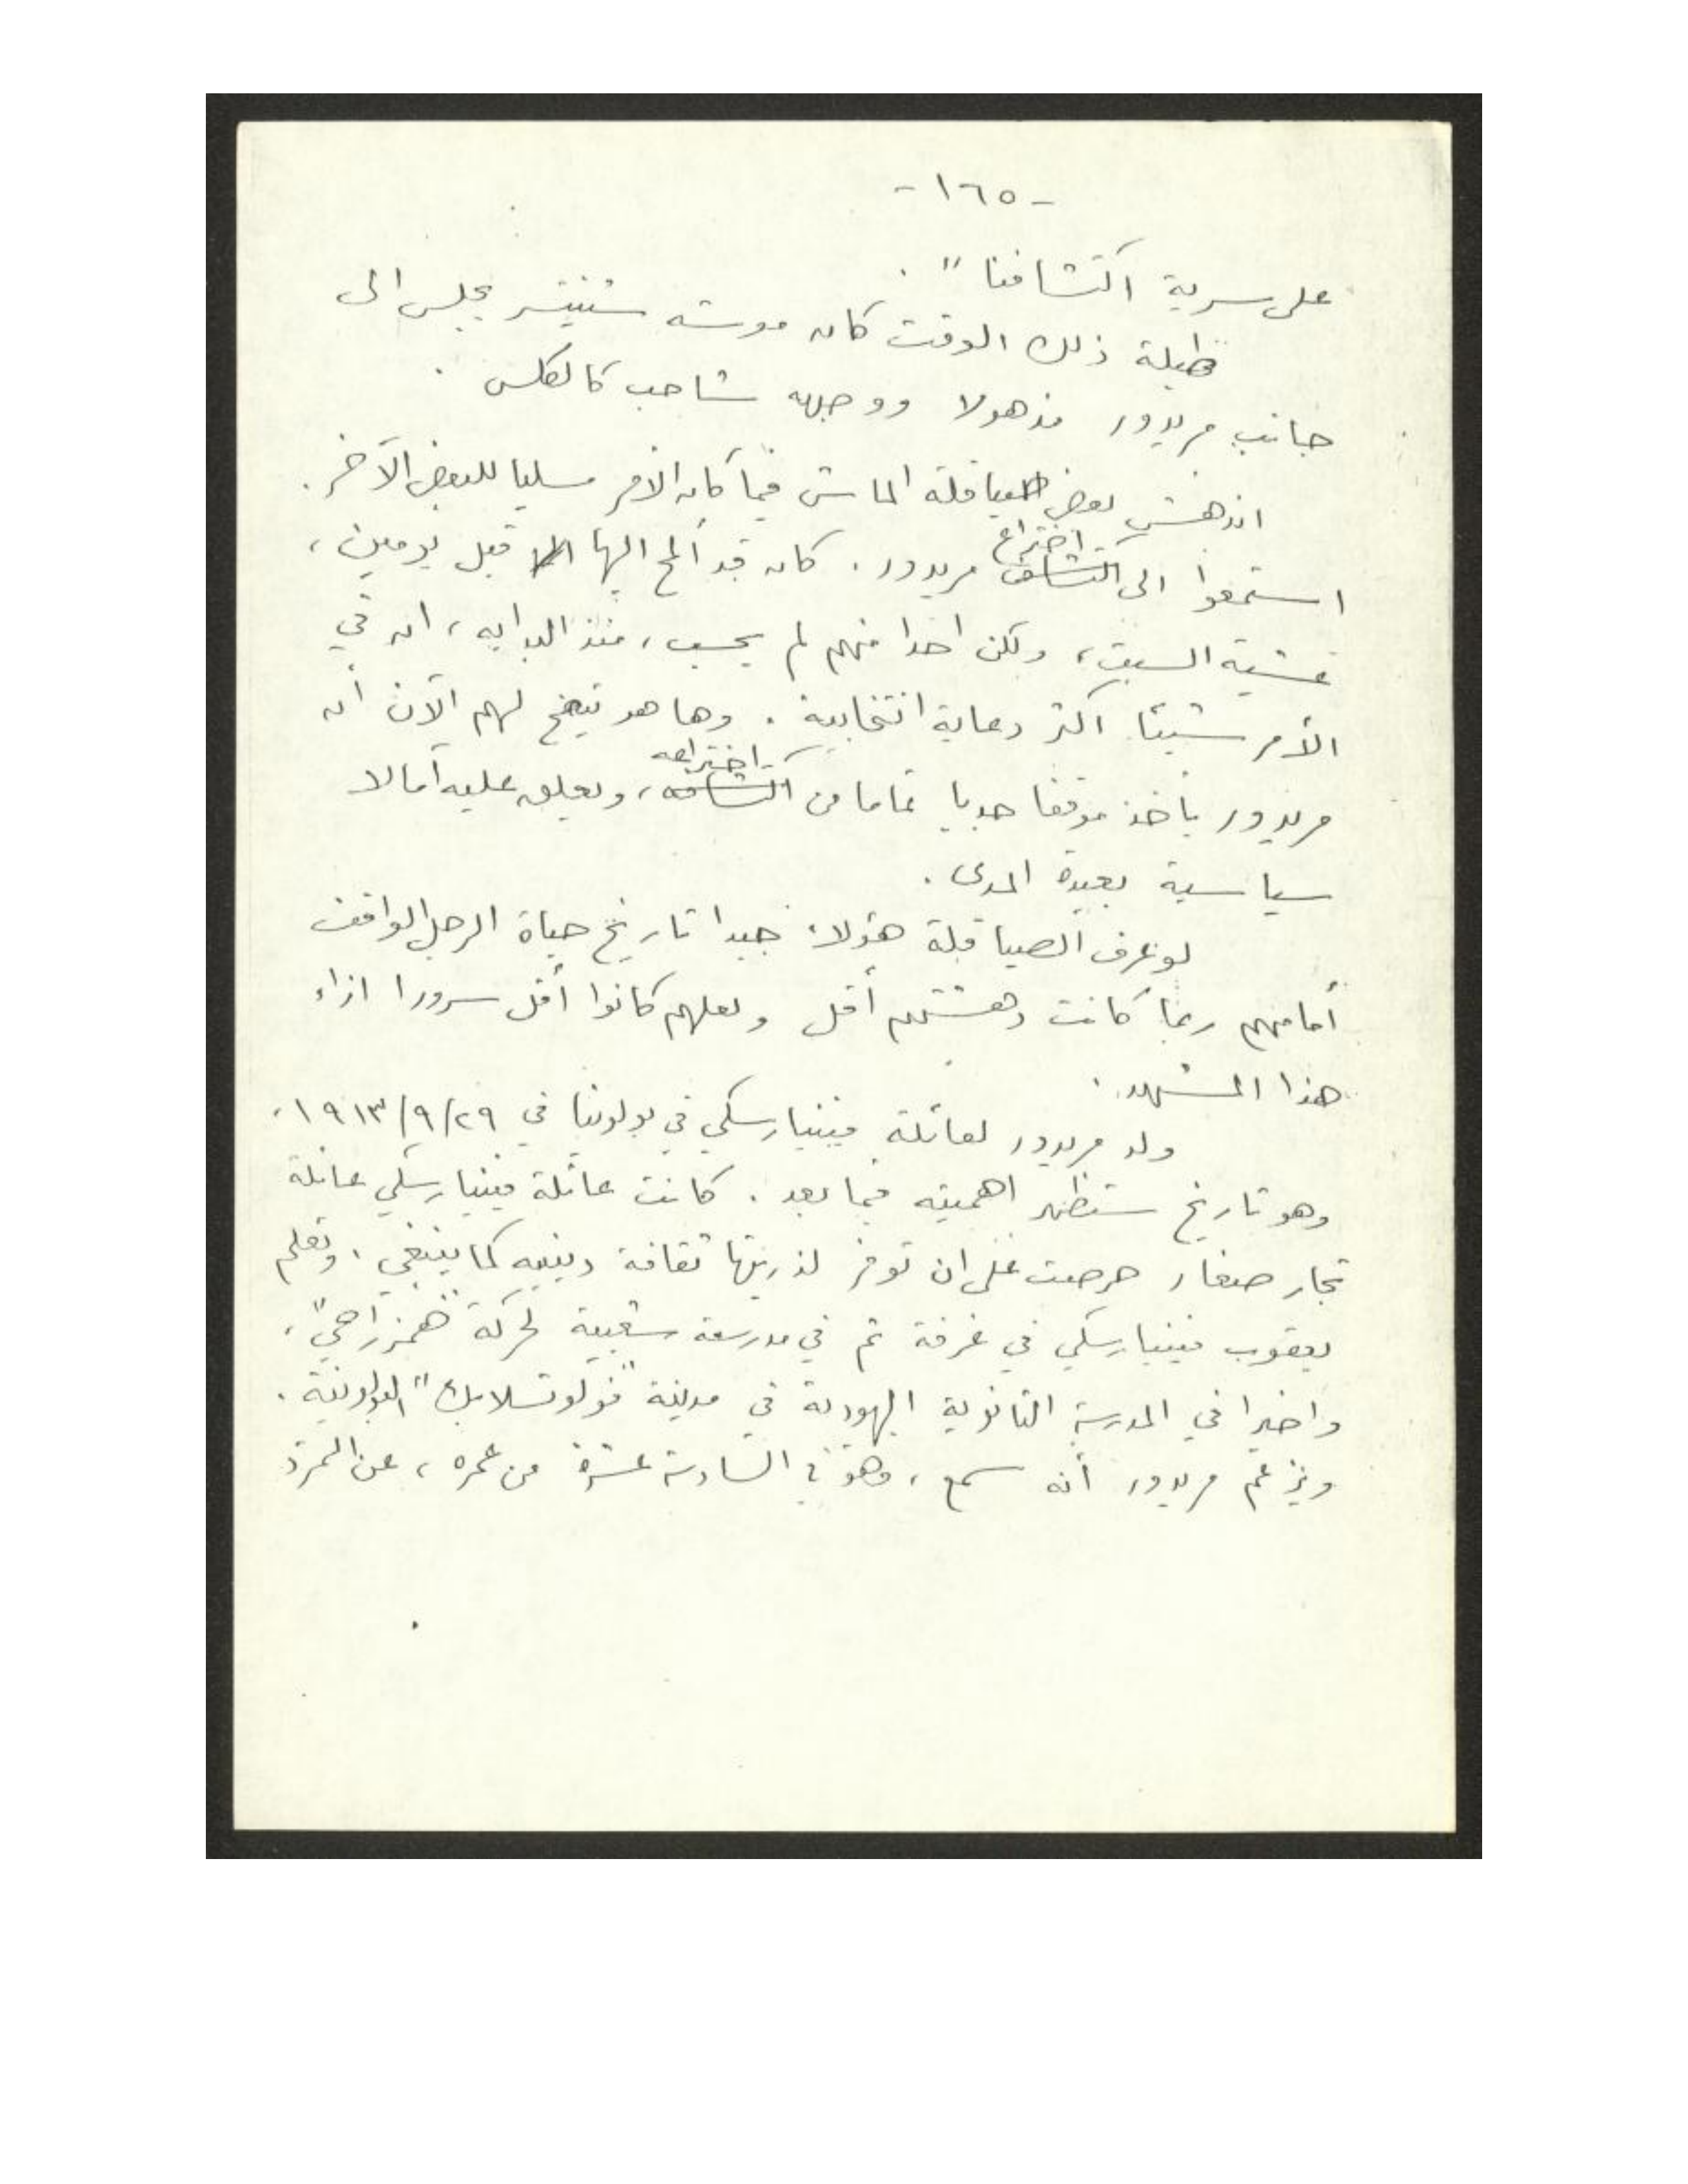 - ١٦٥ -
على سرية اكتشافنا" .
طيلة ذلك الوقت كان موشه شنيتسر يجلس الى
جانب مريدور مذهولا ووجهه شاحب كالكلس .
اندهش بعض صياقلة الماس فيما كان الأمر مسليا للبعض الآخر .
استمعوا الى اختراع مريدور . كان قد ألمح اليها قبل يومين ،
عشية السبت ، ولكن احدا منهم لم يحسب ، منذ البدايه ، ان في
الأمر شيئا اكثر دعاية انتخابية . وها هو يتضح لهم الآن أن
مريدور يأخذ موقفا جديا تماما من اختراعه ، ويعلق عليه آمالا
سياسية بعيدة المدى .
لو عرف الصياقلة هؤلاء جيدا تاريخ حياة الرجل الواقف
أمامهم ربما كانت دهشتهم أقل ولعلهم كانوا أقل سرورا ازاء
هذا المشهد .
ولد مريدور لعائلة فينيارسكي في بولونيا في ١٩١٣/٩/٢٩ ،
وهو تاريخ ستظهر اهميته فيما بعد . كانت عائلة فينيارسكي عائلة
تجار صغار حرصت على ان توفر لذريتها ثقافة دينيه كما ينبغي . وتعلم
يعقوب فينيارسكي في غرفة ثم في مدرسة شعبية لحركة "همزراحي" ،
واخيرا في المدرسة الثانوية اليهودية في مدينة "فولوتسلابك" البولونية .
ويزعم مريدور أنه سمع ، وهو في السادسة عشرة من عمره ، عن التمرد